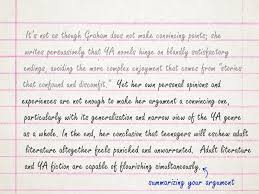 It's not as though Graham does not make convincing points; she
writes persuasively that YA novels hinge on blandly satisfactory
endings, avoiding the more complex enjoyment that comes from "stories
that confound and discomfit." Yet her own personal opinions and
experiences are not enough to make her argument a convincing one,
particularly with its generalization and narrow view of the YA genre
as a whole. In the end, her conclusion that teenagers will eschew adult
literature altogether feels panicked and unwarranted. Adult literature
and YA fiction are capable of flourishing simultaneously.
summarizing your argument